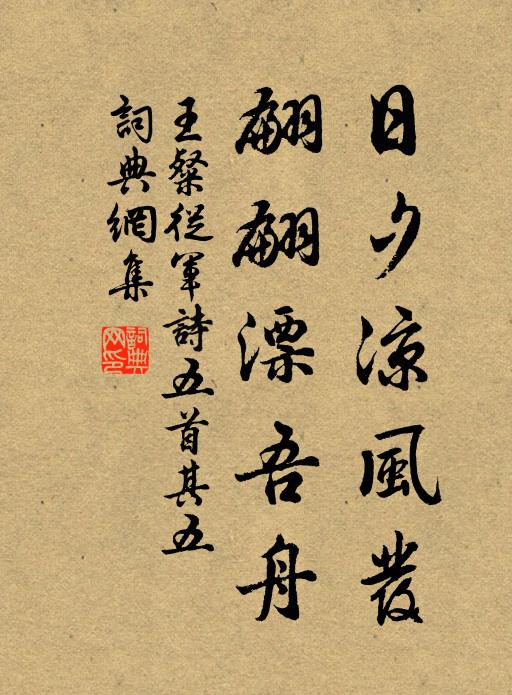 日夕涼風發
翩翩漂吾舟
王粲從軍詩五首其五
詞典網集
詞典網印